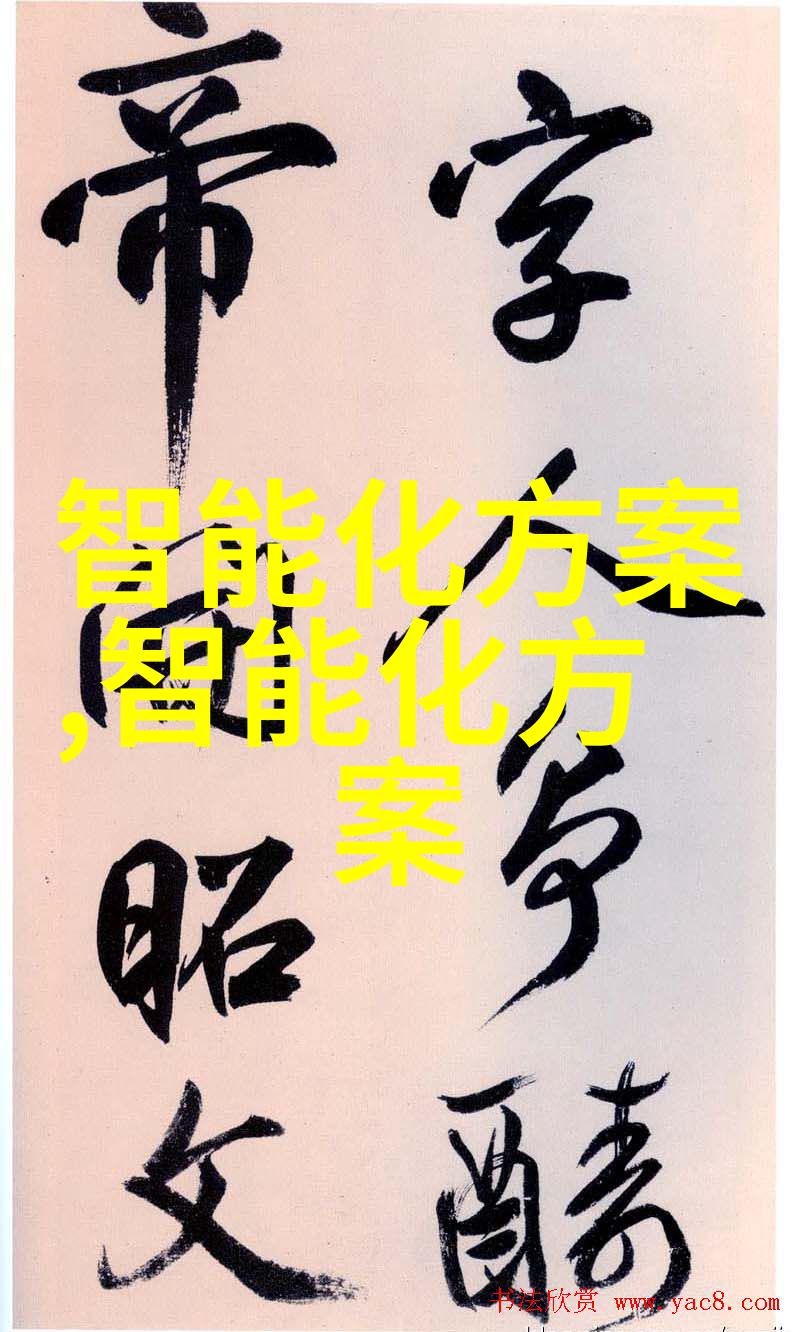 字人争醻
帝
昭文
智能化方案
,智能化方
案
书法欣赏 www.yac8.com